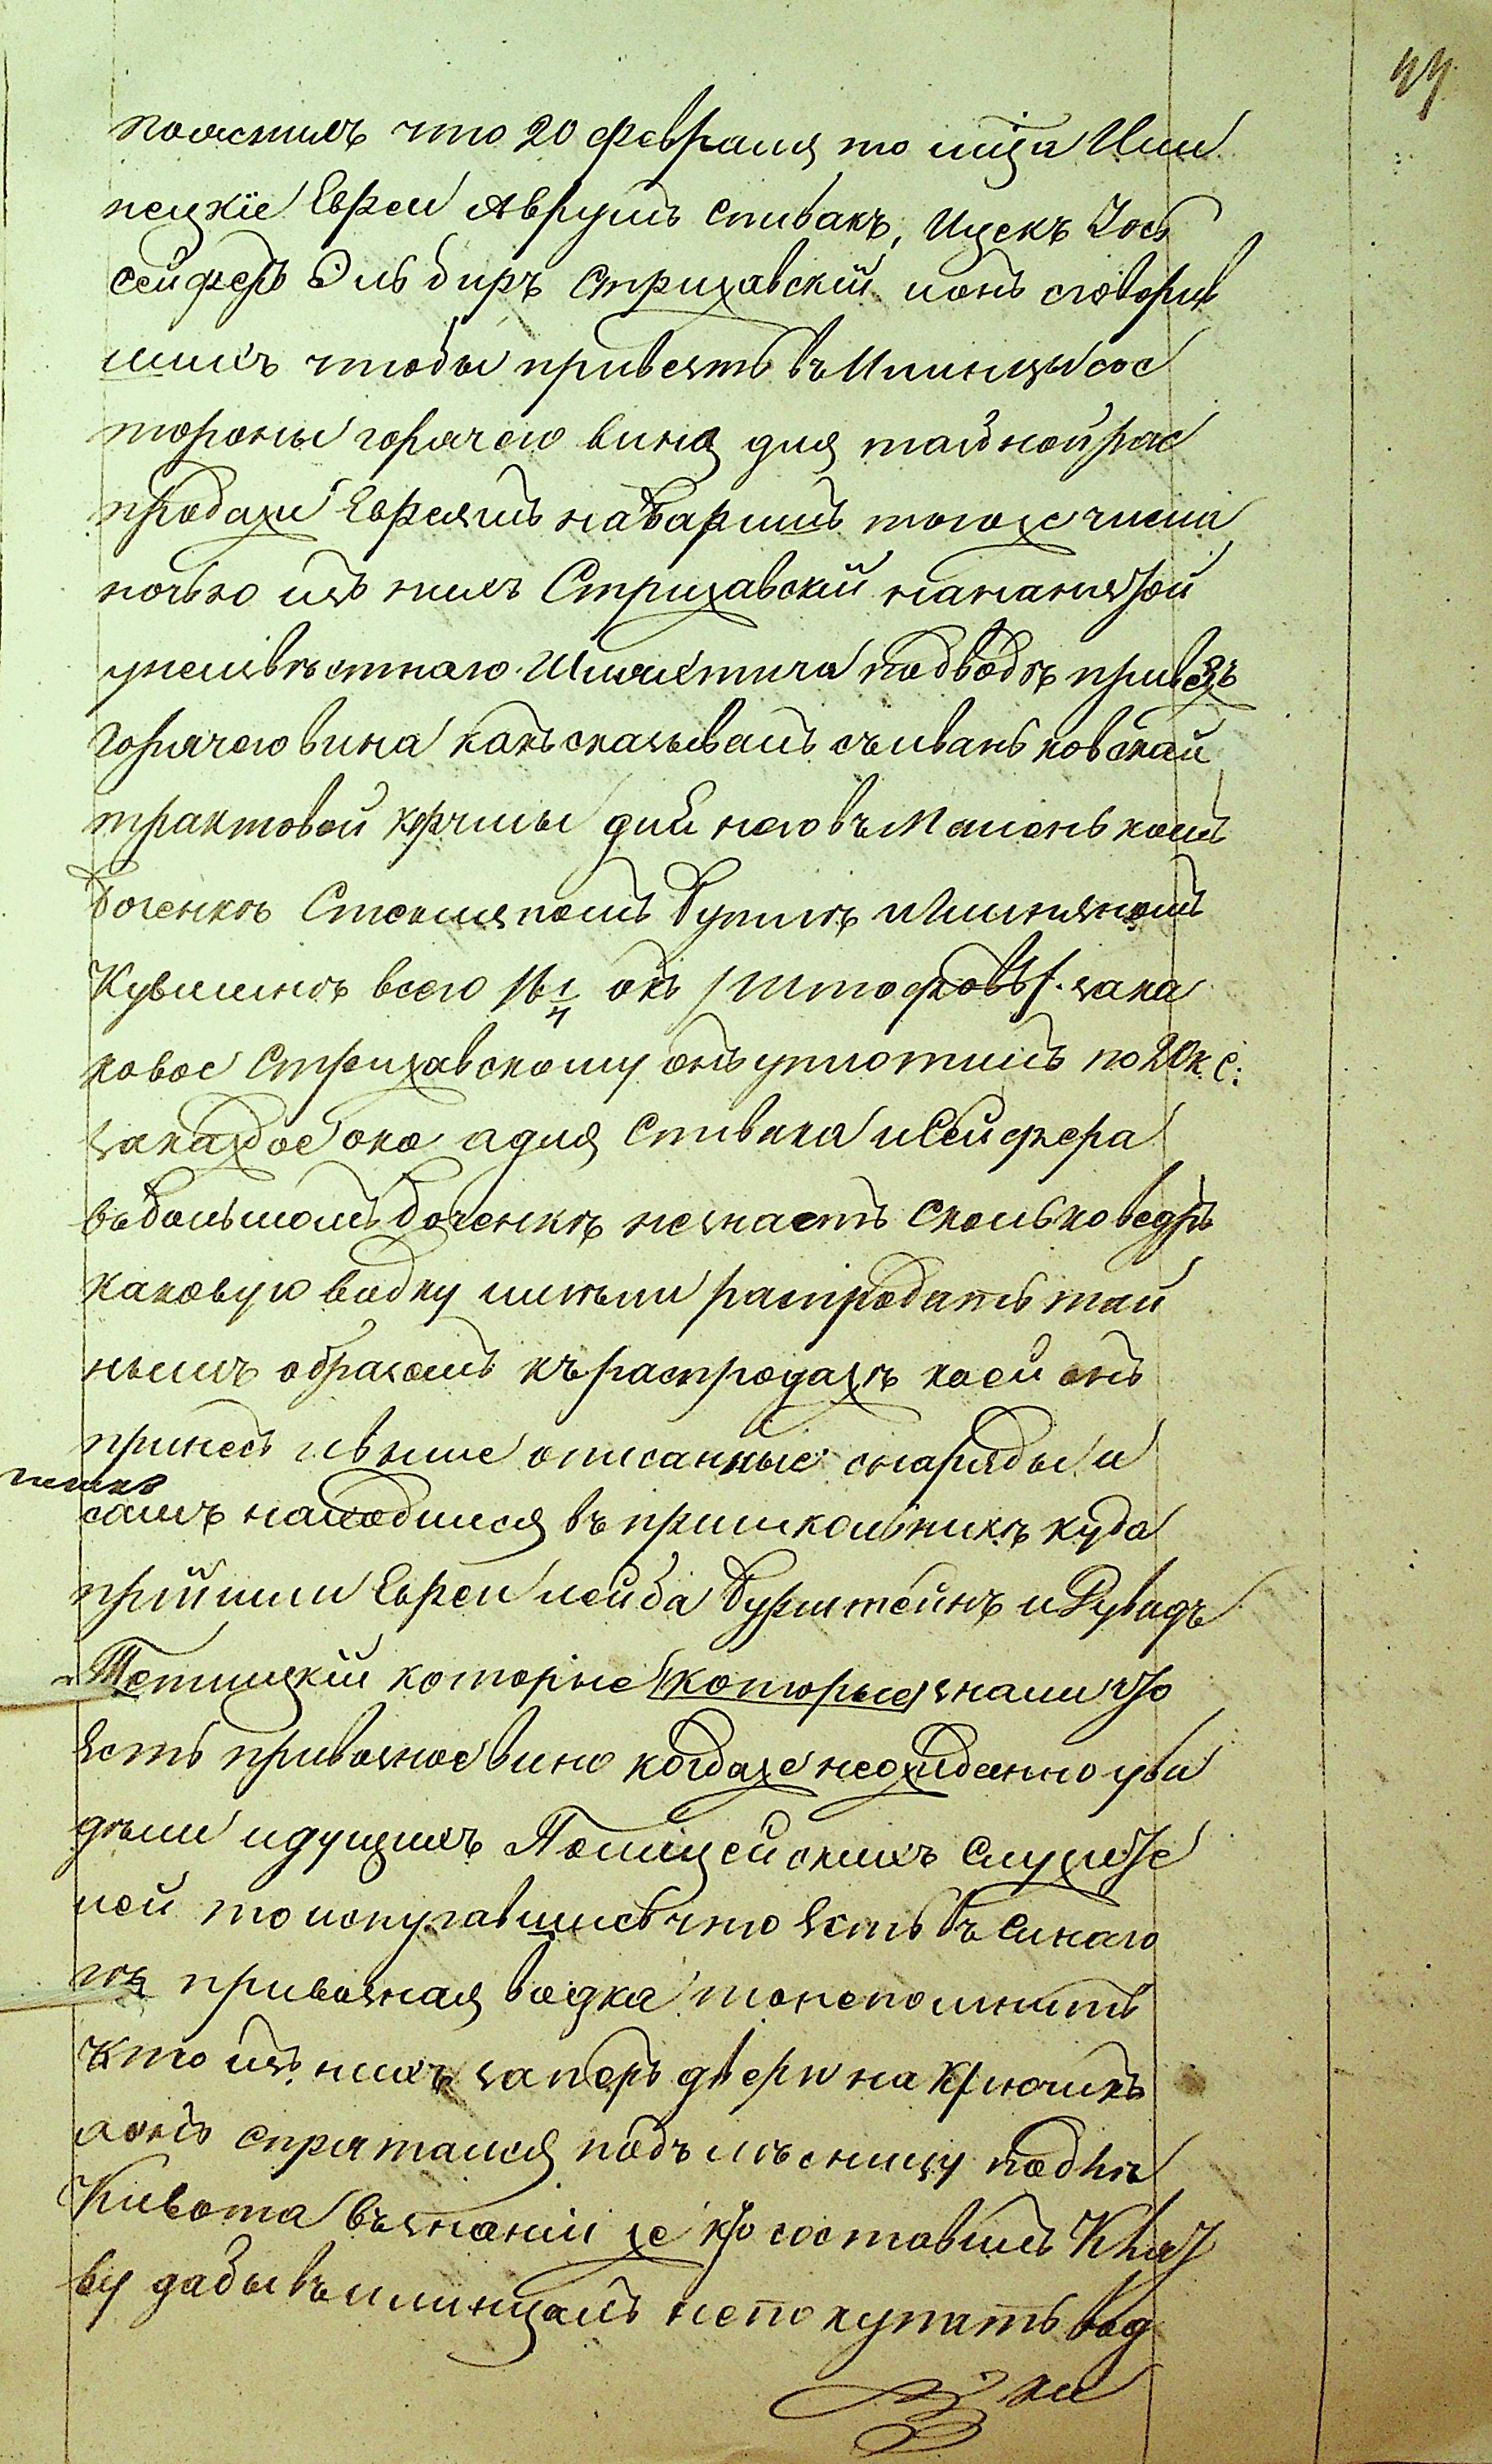 44
пояснилъ что 20 февраля то мца Или
нецкіе Евреи Аврумъ Спивакъ, Ицекъ Іось
Сейферъ Эль биръ Стрижавскій ионъ сговорив
шись чтобы привезть въ Илинцы сос
тороны горячего вина для тайной рас
продажи Евреямъ наваришъ тогоже числа
ночью изъ нихъ Стрижавскій нананятой
унеизвѣстнаго Шляхтича подводѣ привезъ
горячего вина какъ сказывалъ съивань ковской
трактовой корчмы для него въ Маленькомъ
боченкѣ Стекляномъ бутлѣ и глинянномъ
Кувшинѣ всего 16 1/4 окъ /штофовъ/. зака
ковое Стрижавскому онъ уплотилъ по 20 к. с:
закаждое око адля Спивака и Сейфера
въ большомъ боченкѣ незнаетъ сколько ведръ
каковую водку имѣли распродать тай
нымъ образомъ къ распродажѣ коей онъ
принесъ и выше описанные снаряды и
самъ находился въ пришкольникѣ куда
прійшли Евреи Лейба Бурштейнъ и Рувидъ
Тетицкій которые (которые) знали что
Есть привозное вино когдаже неожиданно уви
дѣли идущихъ Полицейскихъ Служите
лей то испугавшись что Есть въ Синаго
гѣ привозная водка то непомнитъ
кто изъ нихъ заперъ двери на Крючикъ
аонъ спрятался подъ лѣсницу подлѣ
Кивота възнаніи же кто составилъ Клят
ву дабы въ илинцахъ непокупать вод
ки